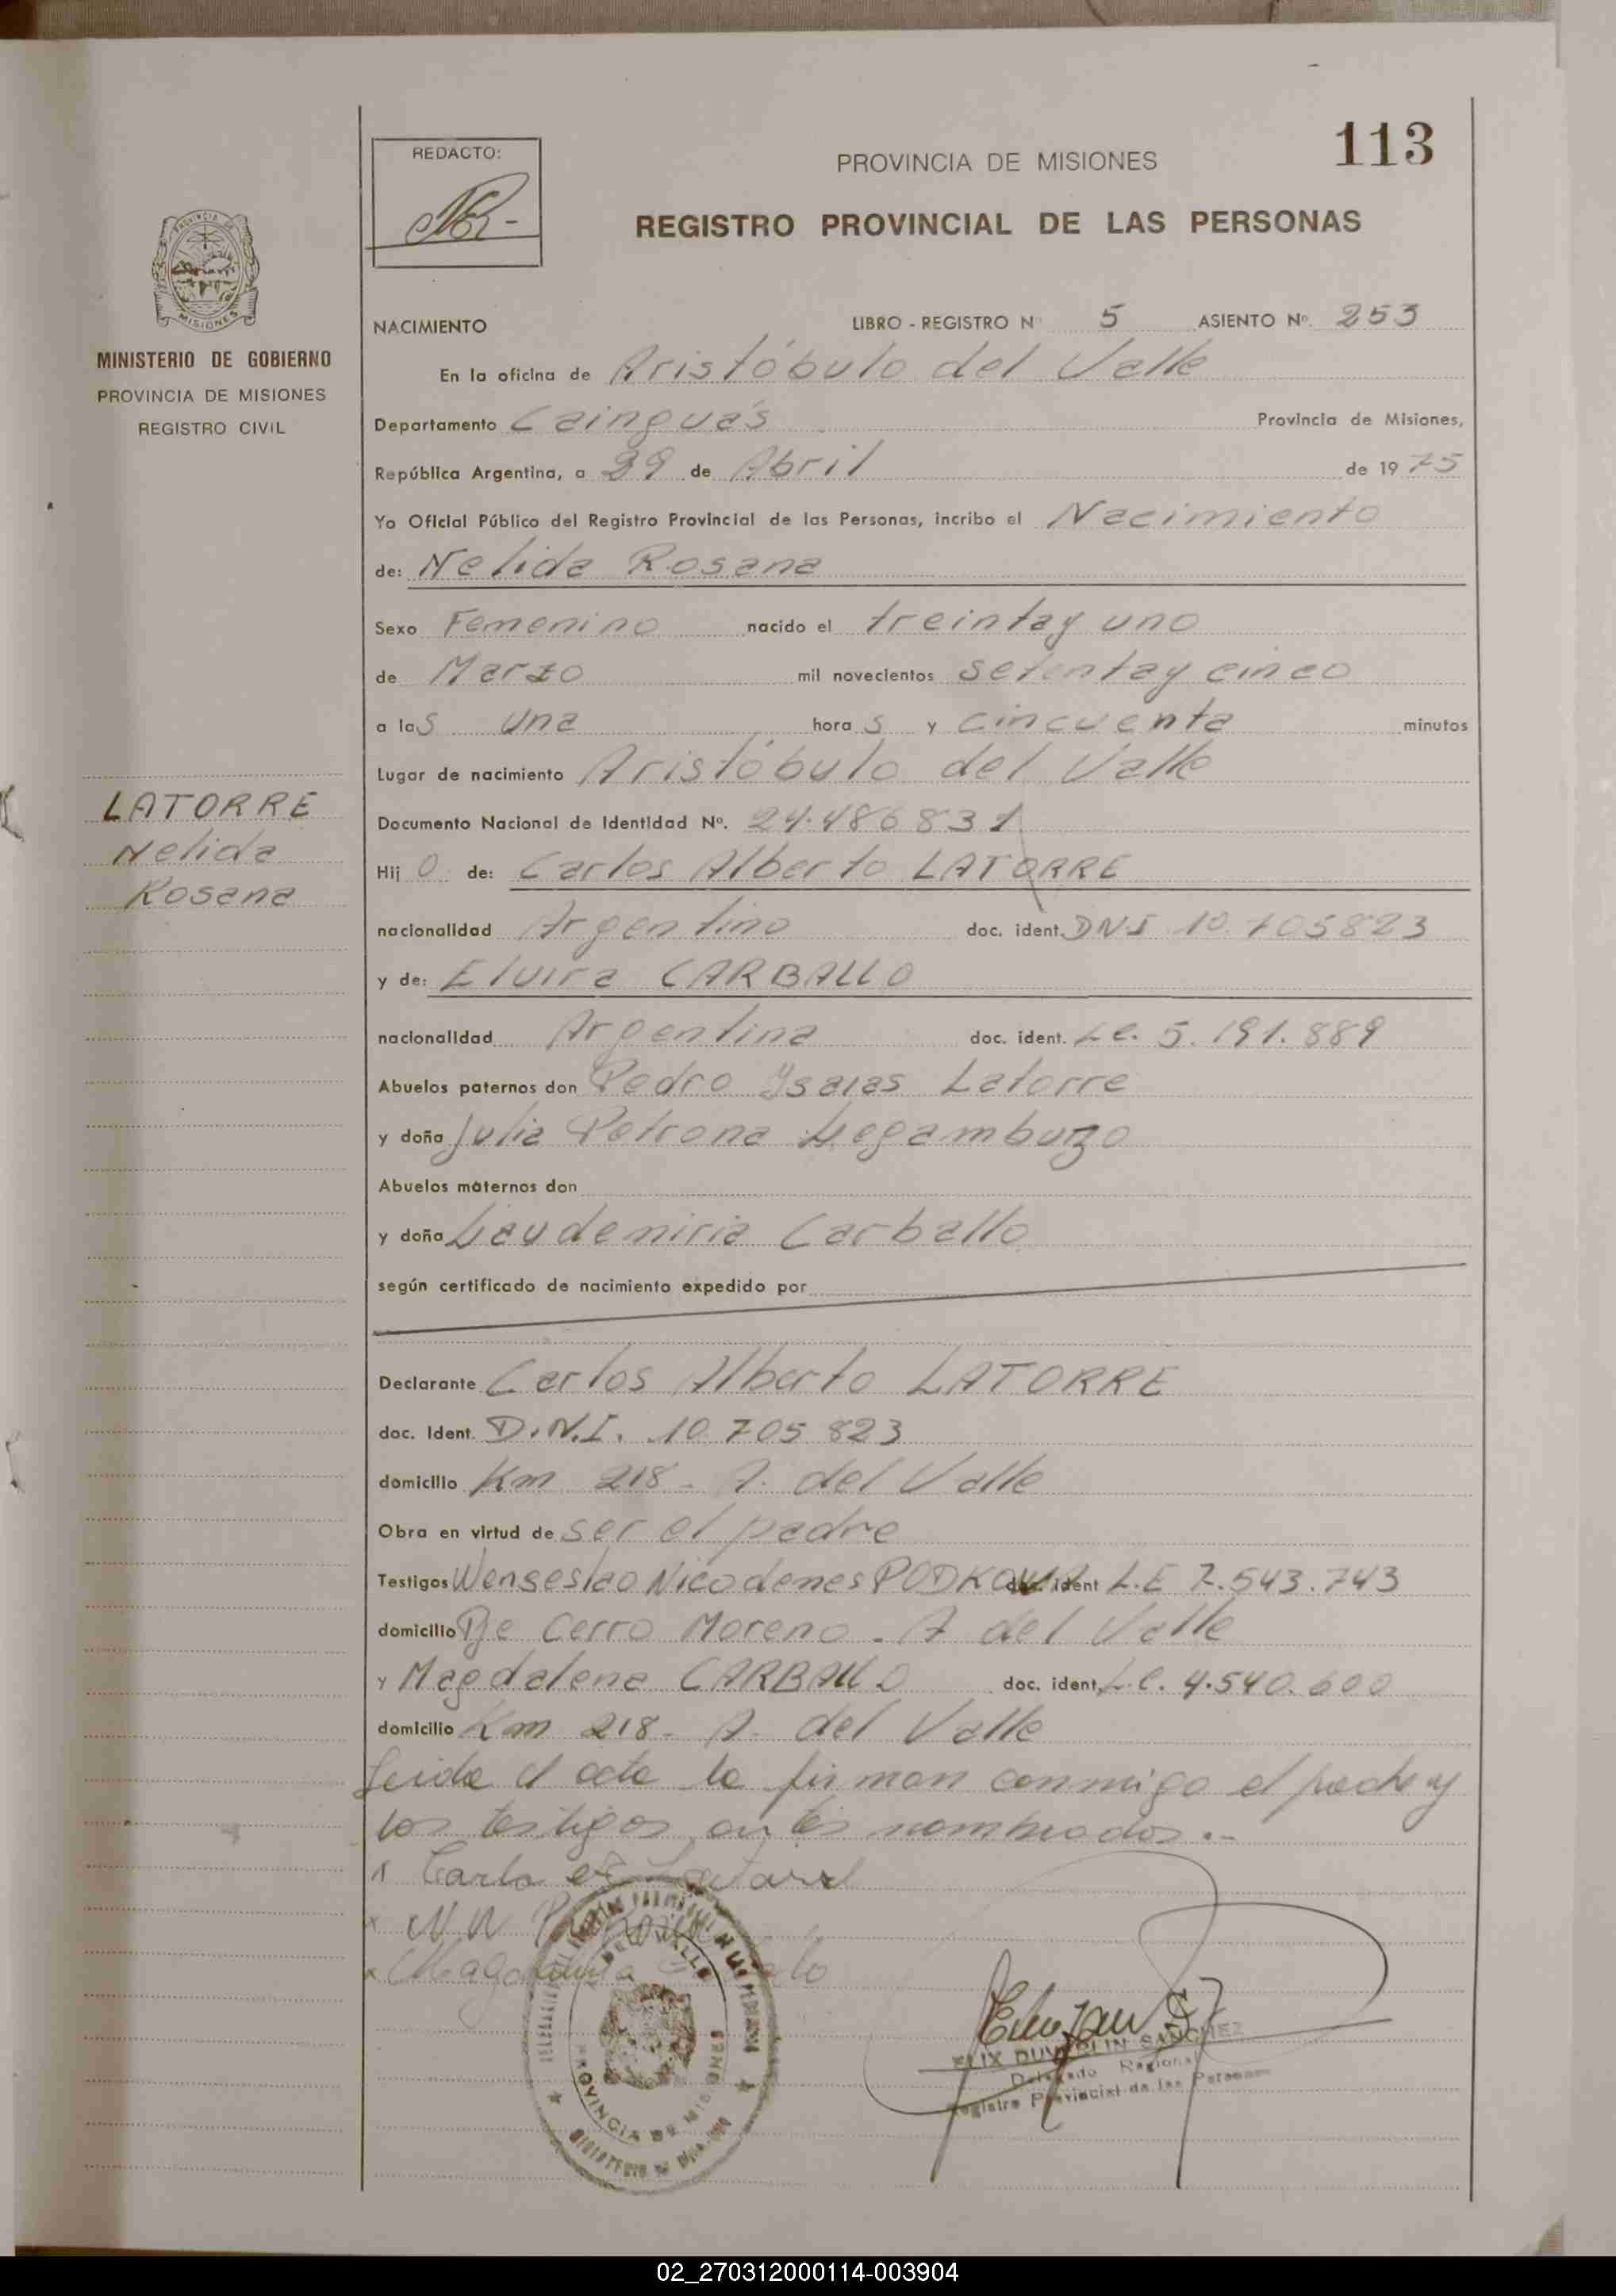 113
REDACTO:
PROVINCIA DE MISIONES
REGISTRO PROVINCIAL DE LAS PERSONAS
PROVINCIA DE
MISIONES
MINISTERIO DE GOBIERNO
PROVINCIA DE MISIONES
REGISTRO CIVIL
NACIMIENTO LIBRO - REGISTRO Nº 5 ASIENTO Nº. 253
En la oficina de Aristóbulo del Valle
Departamento Cainguás Provincia de Misiones,
República Argentina, a 29 de Abril de 1975
Yo Oficial Público del Registro Provincial de las Personas, incribo el Nacimiento
de: Nelida Rosana
Sexo Femenino nacido el treintay uno
de Marzo mil novecientos setentay cinco
a las una horas y cincuenta minutos
Lugar de nacimiento Aristóbulo del Valle
LATORRE
Nelida
Rosana
Documento Nacional de Identidad Nº. 24.486831
Hijo de: Carlos Alberto LATORRE
nacionalidad Argentino doc. ident. DNI 10.705823
y de: Elvira CARBALLO
nacionalidad Argentina doc. ident. L.C. 5.191.889
Abuelos paternos don Pedro Ysaias Latorre
y doña Julia Petrona
Abuelos maternos don
y doña Carballo
según certificado de nacimiento expedido por
Declarante Carlos Alberto LATORRE
doc. Ident. D.N.I. 10.705 823
domicilio Km 218 - A. del Valle
Obra en virtud de ser el padre
Testigos Wenseslao Nicodenes PODKOWA doc. ident L.E 7.543.743
domicilio Pje Cerro Moreno - A del Valle
y Magdalena CARBALLO doc. ident. L.C. 4.540.600
domicilio Km 218 - A. del Valle
Leida el acta la firman conmigo el padre y
los testigos antes nombrados.-
PROVINCIA DE MISIONES
FELIX DUVERLIN SANCHEZ
Delegado Regional
Registro Provincial de las Personas
02_270312000114-003904